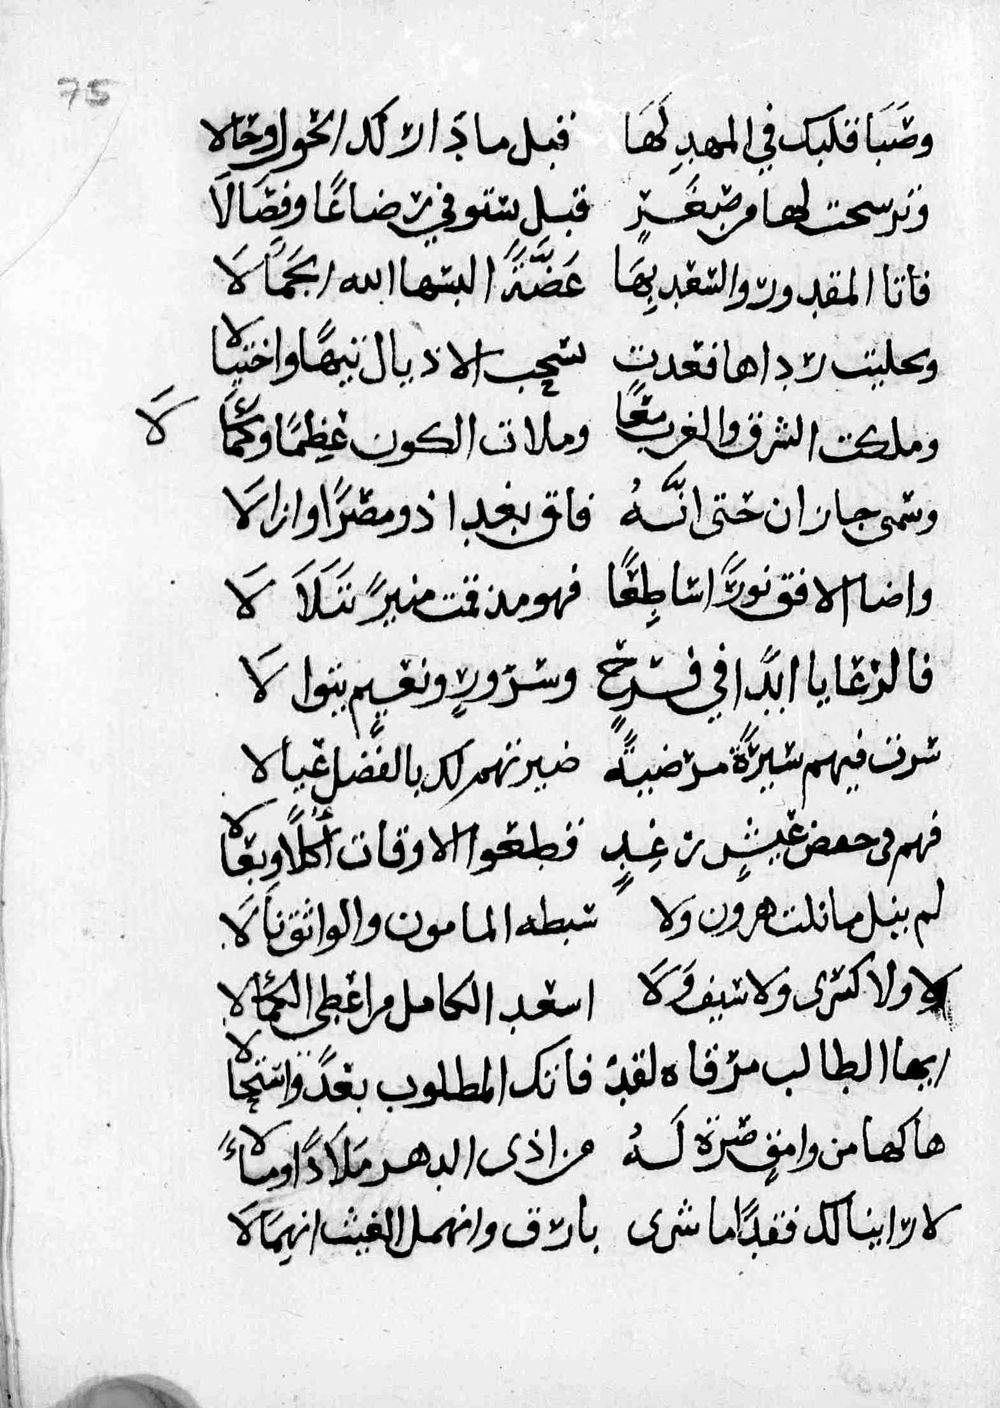 75
وصَبَا قلبك في المهدِ لَهَا قبل ما دار لك الحول وحالا
وترسحت لها من صِغَرٍ قبل ستوفي رضاعًا وفصَالَا
فاتا المقدور والسّعد بِهَا غَضَّةً البسها الله الجَمَالَا
وتحليت رداها فغدت تسحب الاذيال تيهًا واختيالا
وملكت الشرق والغرب معًا وملات الكون عِظمًا وكمَالَا
وسمى جازان حتى انَّهُ فاق بغداذ ومصرًا وازالَا
واضا الافق نورًا ساطِعًا فهو مذ قمت منيرً تتَلَالَا
فالرعايا ابدًا في فرحٍ وسرورٍ ونعيم يتوالَا
سرت فيهم سيرةً مرضيةً صيرتهم لك بالفضل عيالا
فهم في خفض عيشٍ رغدٍ قطعوا الاوقات أكلًا وبعالا
لم ينل ما نلت هرون ولا سبطه المامون والواثق نالَا
لا ولا كسرى ولا سيف وَلَا اسعد الكامل من اعطى الكمالا
ايها الطالب مرقاه لقد فاتك المطلوب بعدً واستحالا
هاكها من وامقٍ صرة لَهُ من اذى الدهر مَلَاذًا ومآلا
لا راينا لك فقدًا ما شرى بارق وانهمل الغيث انهِمَالَا